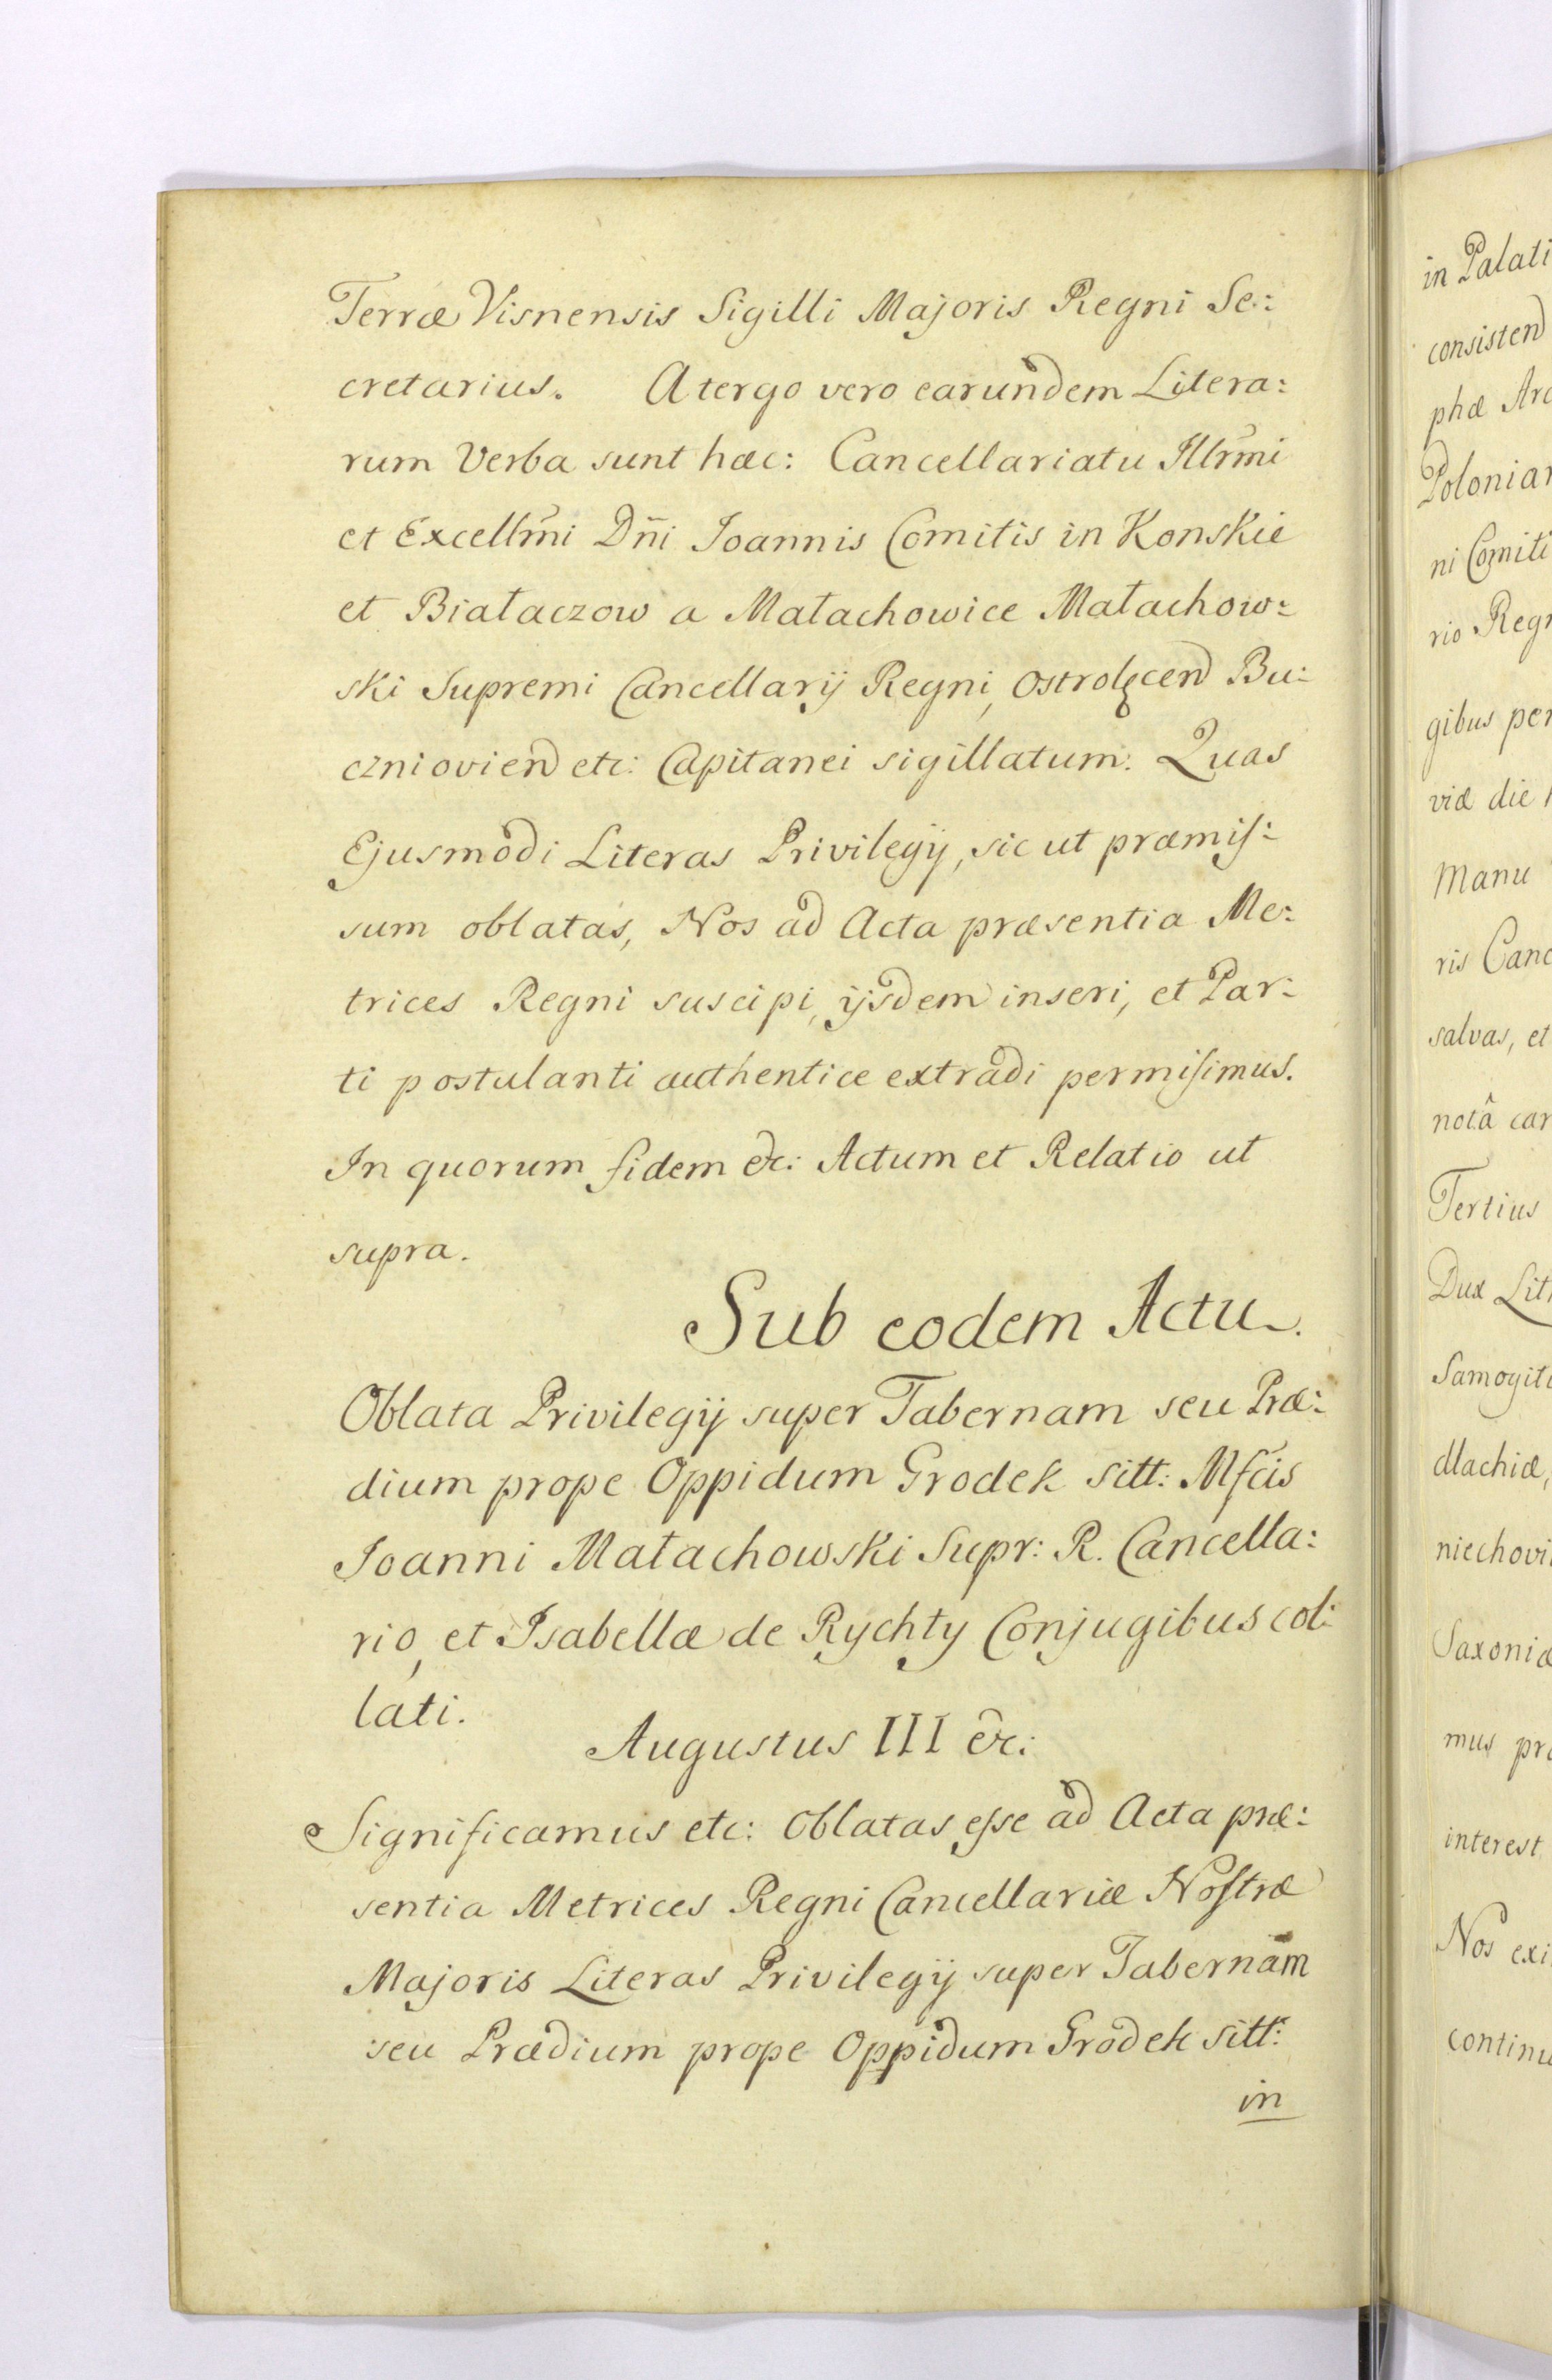 Terræ Visnensis Sigilli Majoris Regni Se:
cretarius. A tergo vero earundem Litera:
rum Verba sunt hæc: Cancellariatu Illr̃mi
et Excellm̃i Dñi Joannis Comitis in Konskie
et Białaczow a Małachowice Małachow:
ski Supremi Cancellarij Regni, Ostrolęcen Bu:
czniovien etc: Capitanei sigillatum. Quas
Ejusmodi Literas Privilegij, sic ut præmis:
sum oblatas, Nos ad Acta præsentia Me:
trices Regni suscipi, ijsdem inseri, et Par:
ti postulanti authentice extradi permisimus.
In quorum fidem &c: Actum et Relatio ut
supra.
Sub eodem Actu.
Oblata Privilegij super Tabernam seu Præ:
dium prope Oppidum Grodek sitt: Mfcis
Joanni Małachowski Supr: R. Cancella:
rio, et Isabellæ de Rychty Conjugibus col:
lati.
Augustus III &c:
Significamus etc: Oblatas esse ad Acta præ:
sentia Metrices Regni Cancellariæ Nostræ
Majoris Literas Privilegij super Tabernam
seu Prædium prope Oppidum Grodek sitt:
in
in Palati
consisten
phæ Arc
Polonia
ni Comiti
rio Reg
gibus per
viæ die
Manu
ris Canc
salvas, et
notâ car
Tertius
Dux Lit
Samogiti
dlachiæ,
niechovi
Saxoniæ
mus pr
interest
Nos exi
continu